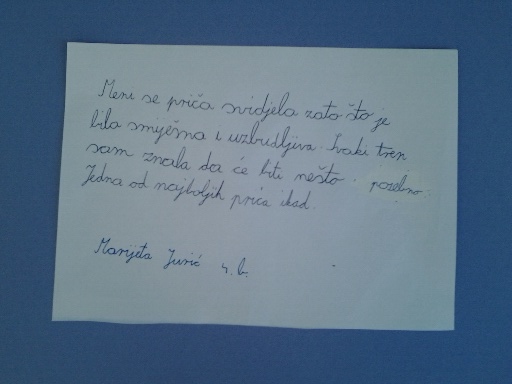 Meni se priča svidjela zato što je
bila smiješna i uzbudljiva. Svaki tren
sam znala da će biti nešto posebno.
Jedna od najboljih priča ikad.
Marijeta Jurić 4. b.